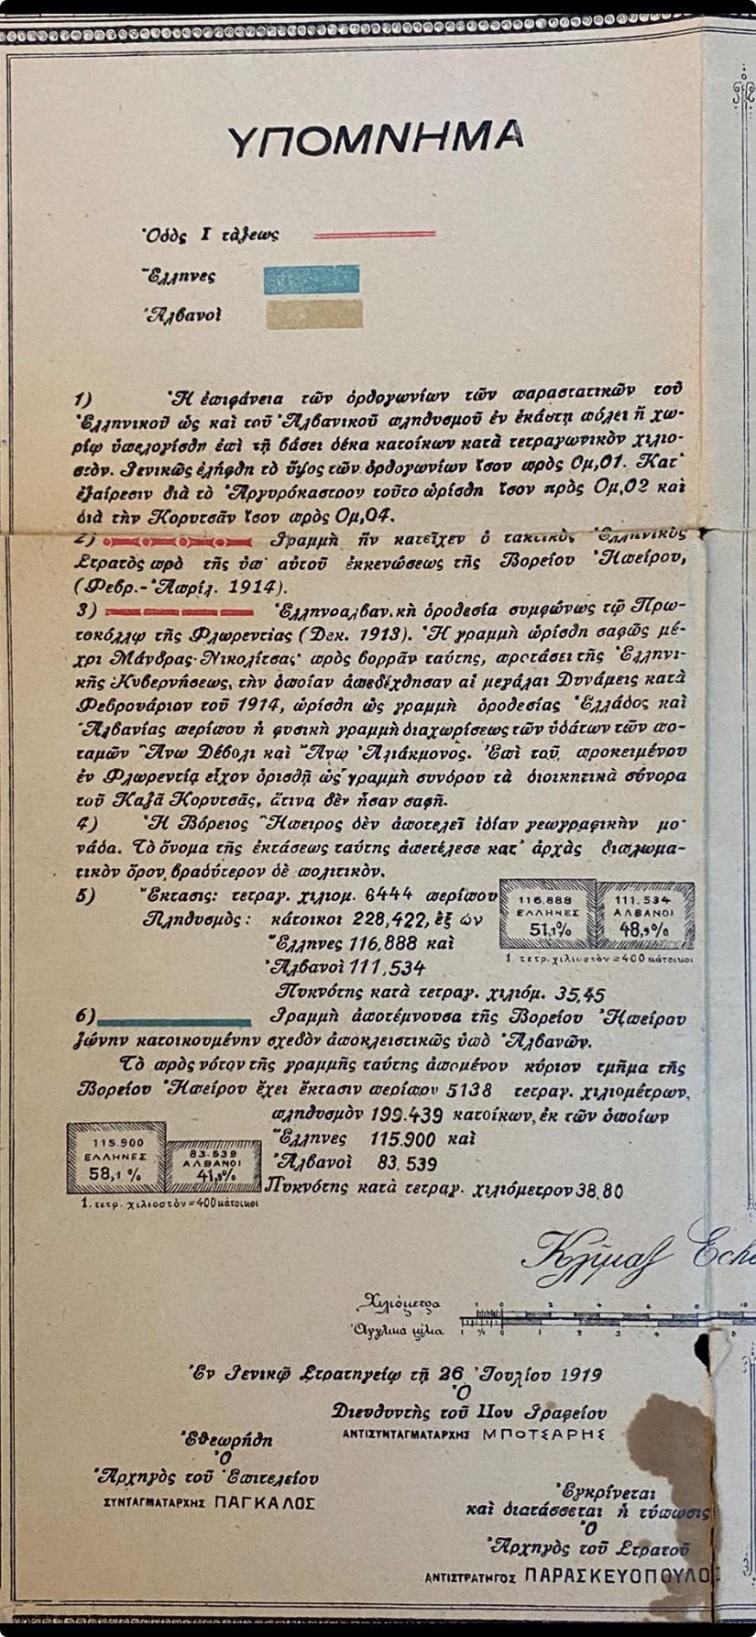 ΥΠΟΜΝΗΜΑ
Ὁδὸς Ι τάξεως
Ἕλληνες
Ἀλβανοὶ
1) Ἡ ἐπιφάνεια τῶν ὀρθογωνίων τῶν παραστατικῶν τοῦ
Ἑλληνικοῦ ὡς καὶ τοῦ Ἀλβανικοῦ πληθυσμοῦ ἐν ἑκάστῃ πόλει ἢ χω-
ρίῳ ὑπελογίσθη ἐπὶ τῇ βάσει δέκα κατοίκων κατὰ τετραγωνικὸν χιλιο-
στὸν. Γενικῶς ἐλήφθη τὸ ὕψος τῶν ὀρθογωνίων ἴσον πρὸς 0μ,01. Κατ'
ἐξαίρεσιν διὰ τὸ Ἀργυρόκαστρον τοῦτο ὡρίσθη ἴσον πρὸς 0μ,02 καὶ
διὰ τὴν Κορυτσᾶν ἴσον πρὸς 0μ,04.
2) Γραμμὴ ἣν κατεῖχεν ὁ τακτικὸς Ἑλληνικὸς
Στρατὸς πρὸ τῆς ὑπ' αὐτοῦ ἐκκενώσεως τῆς Βορείου Ἠπείρου,
(Φεβρ.-Ἀπρίλ. 1914).
3) Ἑλληνοαλβαν.κὴ ὁροθεσία συμφώνως τῷ Πρω-
τοκόλλῳ τῆς Φλωρεντίας (Δεκ. 1913). Ἡ γραμμὴ ὡρίσθη σαφῶς μέ-
χρι Μάνδρας-Νικολίτσας· πρὸς βορρᾶν ταύτης, προτάσει τῆς Ἑλληνι-
κῆς Κυβερνήσεως, τὴν ὁποίαν ἀπεδέχθησαν αἱ μεγάλαι Δυνάμεις κατὰ
Φεβρουάριον τοῦ 1914, ὡρίσθη ὡς γραμμὴ ὁροθεσίας Ἑλλάδος καὶ
Ἀλβανίας περίπου ἡ φυσικὴ γραμμὴ διαχωρίσεως τῶν ὑδάτων τῶν πο-
ταμῶν Ἄνω Δέβολι καὶ Ἄνω Ἀλιάκμονος. Ἐπὶ τοῦ προκειμένου
ἐν Φλωρεντίᾳ εἶχον ὁρισθῆ ὡς γραμμὴ συνόρου τὰ διοικητικὰ σύνορα
τοῦ Καζᾶ Κορυτσᾶς, ἅτινα δὲν ἦσαν σαφῆ.
4) Ἡ Βόρειος Ἤπειρος δὲν ἀποτελεῖ ἰδίαν γεωγραφικὴν μο-
νάδα. Τὸ ὄνομα τῆς ἐκτάσεως ταύτης ἀπετέλεσε κατ' ἀρχὰς διπλωμα-
τικὸν ὅρον, βραδύτερον δὲ πολιτικὸν.
5) Ἔκτασις: τετραγ. χιλιομ. 6444 περίπου
Πληθυσμὸς: κάτοικοι 228,422, ἐξ ὧν
Ἕλληνες 116,888 καὶ
Ἀλβανοὶ 111,534
116.888
ΕΛΛΗΝΕΣ
51,1%
111.534
ΑΛΒΑΝΟΙ
48,9%
1 τετρ. χιλιοστὸν=400 κάτοικοι
Πυκνότης κατὰ τετραγ. χιλιόμ. 35,45
6) Γραμμὴ ἀποτέμνουσα τῆς Βορείου Ἠπείρου
ζώνην κατοικουμένην σχεδὸν ἀποκλειστικῶς ὑπὸ Ἀλβανῶν.
Τὸ πρὸς νότον τῆς γραμμῆς ταύτης ἀπομένον κύριον τμῆμα τῆς
Βορείου Ἠπείρου ἔχει ἔκτασιν περίπου 5138 τετραγ. χιλιομέτρων,
πληθυσμὸν 199.439 κατοίκων, ἐκ τῶν ὁποίων
Ἕλληνες 115.900 καὶ
Ἀλβανοὶ 83.539
115.900
ΕΛΛΗΝΕΣ
58,1 %
83.539
ΑΛΒΑΝΟΙ
41,9%
1. τετρ. χιλιοστὸν=400 κάτοικοι
Πυκνότης κατὰ τετραγ. χιλιόμετρον 38,80
Κλῖμαξ
Χιλιόμετρα
Ἀγγλικὰ μίλια
Ἐν Γενικῷ Στρατηγείῳ τῇ 26 Ἰουλίου 1919
Ὁ
Διευθυντὴς τοῦ ΙΙου Γραφείου
ΑΝΤΙΣΥΝΤΑΓΜΑΤΑΡΧΗΣ ΜΠΟΤΣΑΡΗΣ
Ἐθεωρήθη
Ὁ
Ἀρχηγὸς τοῦ Ἐπιτελείου
ΣΥΝΤΑΓΜΑΤΑΡΧΗΣ ΠΑΓΚΑΛΟΣ
Ἐγκρίνεται
καὶ διατάσσεται ἡ τύπωσις
Ὁ
Ἀρχηγὸς τοῦ Στρατοῦ
ΑΝΤΙΣΤΡΑΤΗΓΟΣ ΠΑΡΑΣΚΕΥΟΠΟΥΛΟΣ